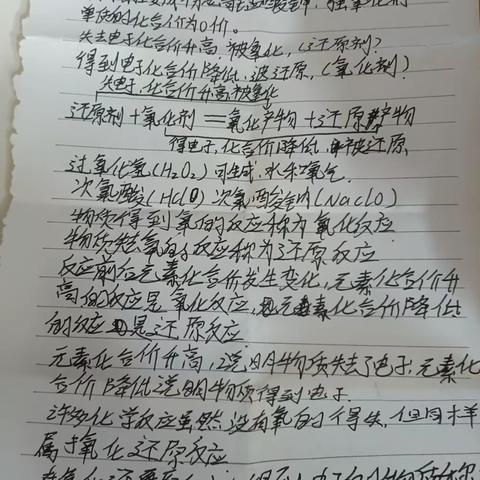 单质的化合价为0价。
失去电子化合价升高,被氧化,(还原剂)
得到电子化合价降低,被还原,(氧化剂)
失电子,化合价升高,被氧化
还原剂+氧化剂=氧化产物+还原产物
得电子,化合价降低,被还原
过氧化氢(H₂O₂)可生成水和氧气
次氯酸(HClO)次氯酸钠(NaClO)
物质得到氧的反应称为氧化反应
物质失氧的反应称为还原反应
反应前后元素化合价发生变化,元素化合价升
高的反应是氧化反应,元素化合价降低
的反应是还原反应
元素化合价升高,说明物质失去了电子;元素化
合价降低说明物质得到电子.
许多化学反应虽然没有氧的得失,但同样
属于氧化还原反应